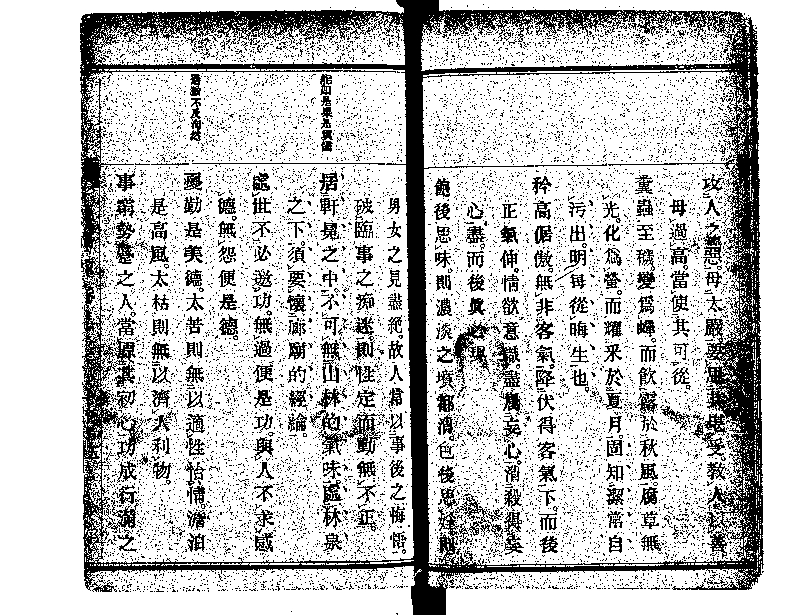 攻人之惡毋太嚴要思其堪受教人以善
毋過高當使其可從
糞蟲至穢變爲蟬而飮露於秋風腐草無
光化爲螢而耀采於夏月固知潔常自
污出明每從晦生也
矜高倨傲無非客氣降伏得客氣下而後
正氣伸情欲意識盡屬妄心消殺得妄
心盡而後眞心現
飽後思味則濃淡之境都消色後思婬則
男女之見盡絕故人常以事後之悔悟
破臨事之痴迷則性定而動無不正
居軒冕之中不可無山林的氣味處林泉
之下須要懷廊廟的經綸
處世不必邀功無過便是功與人不求感
德無怨便是德
憂勤是美德太苦則無以適性怡情澹泊
是高風太枯則無以濟人利物
事窮勢蹙之人當原其初心功成行滿之